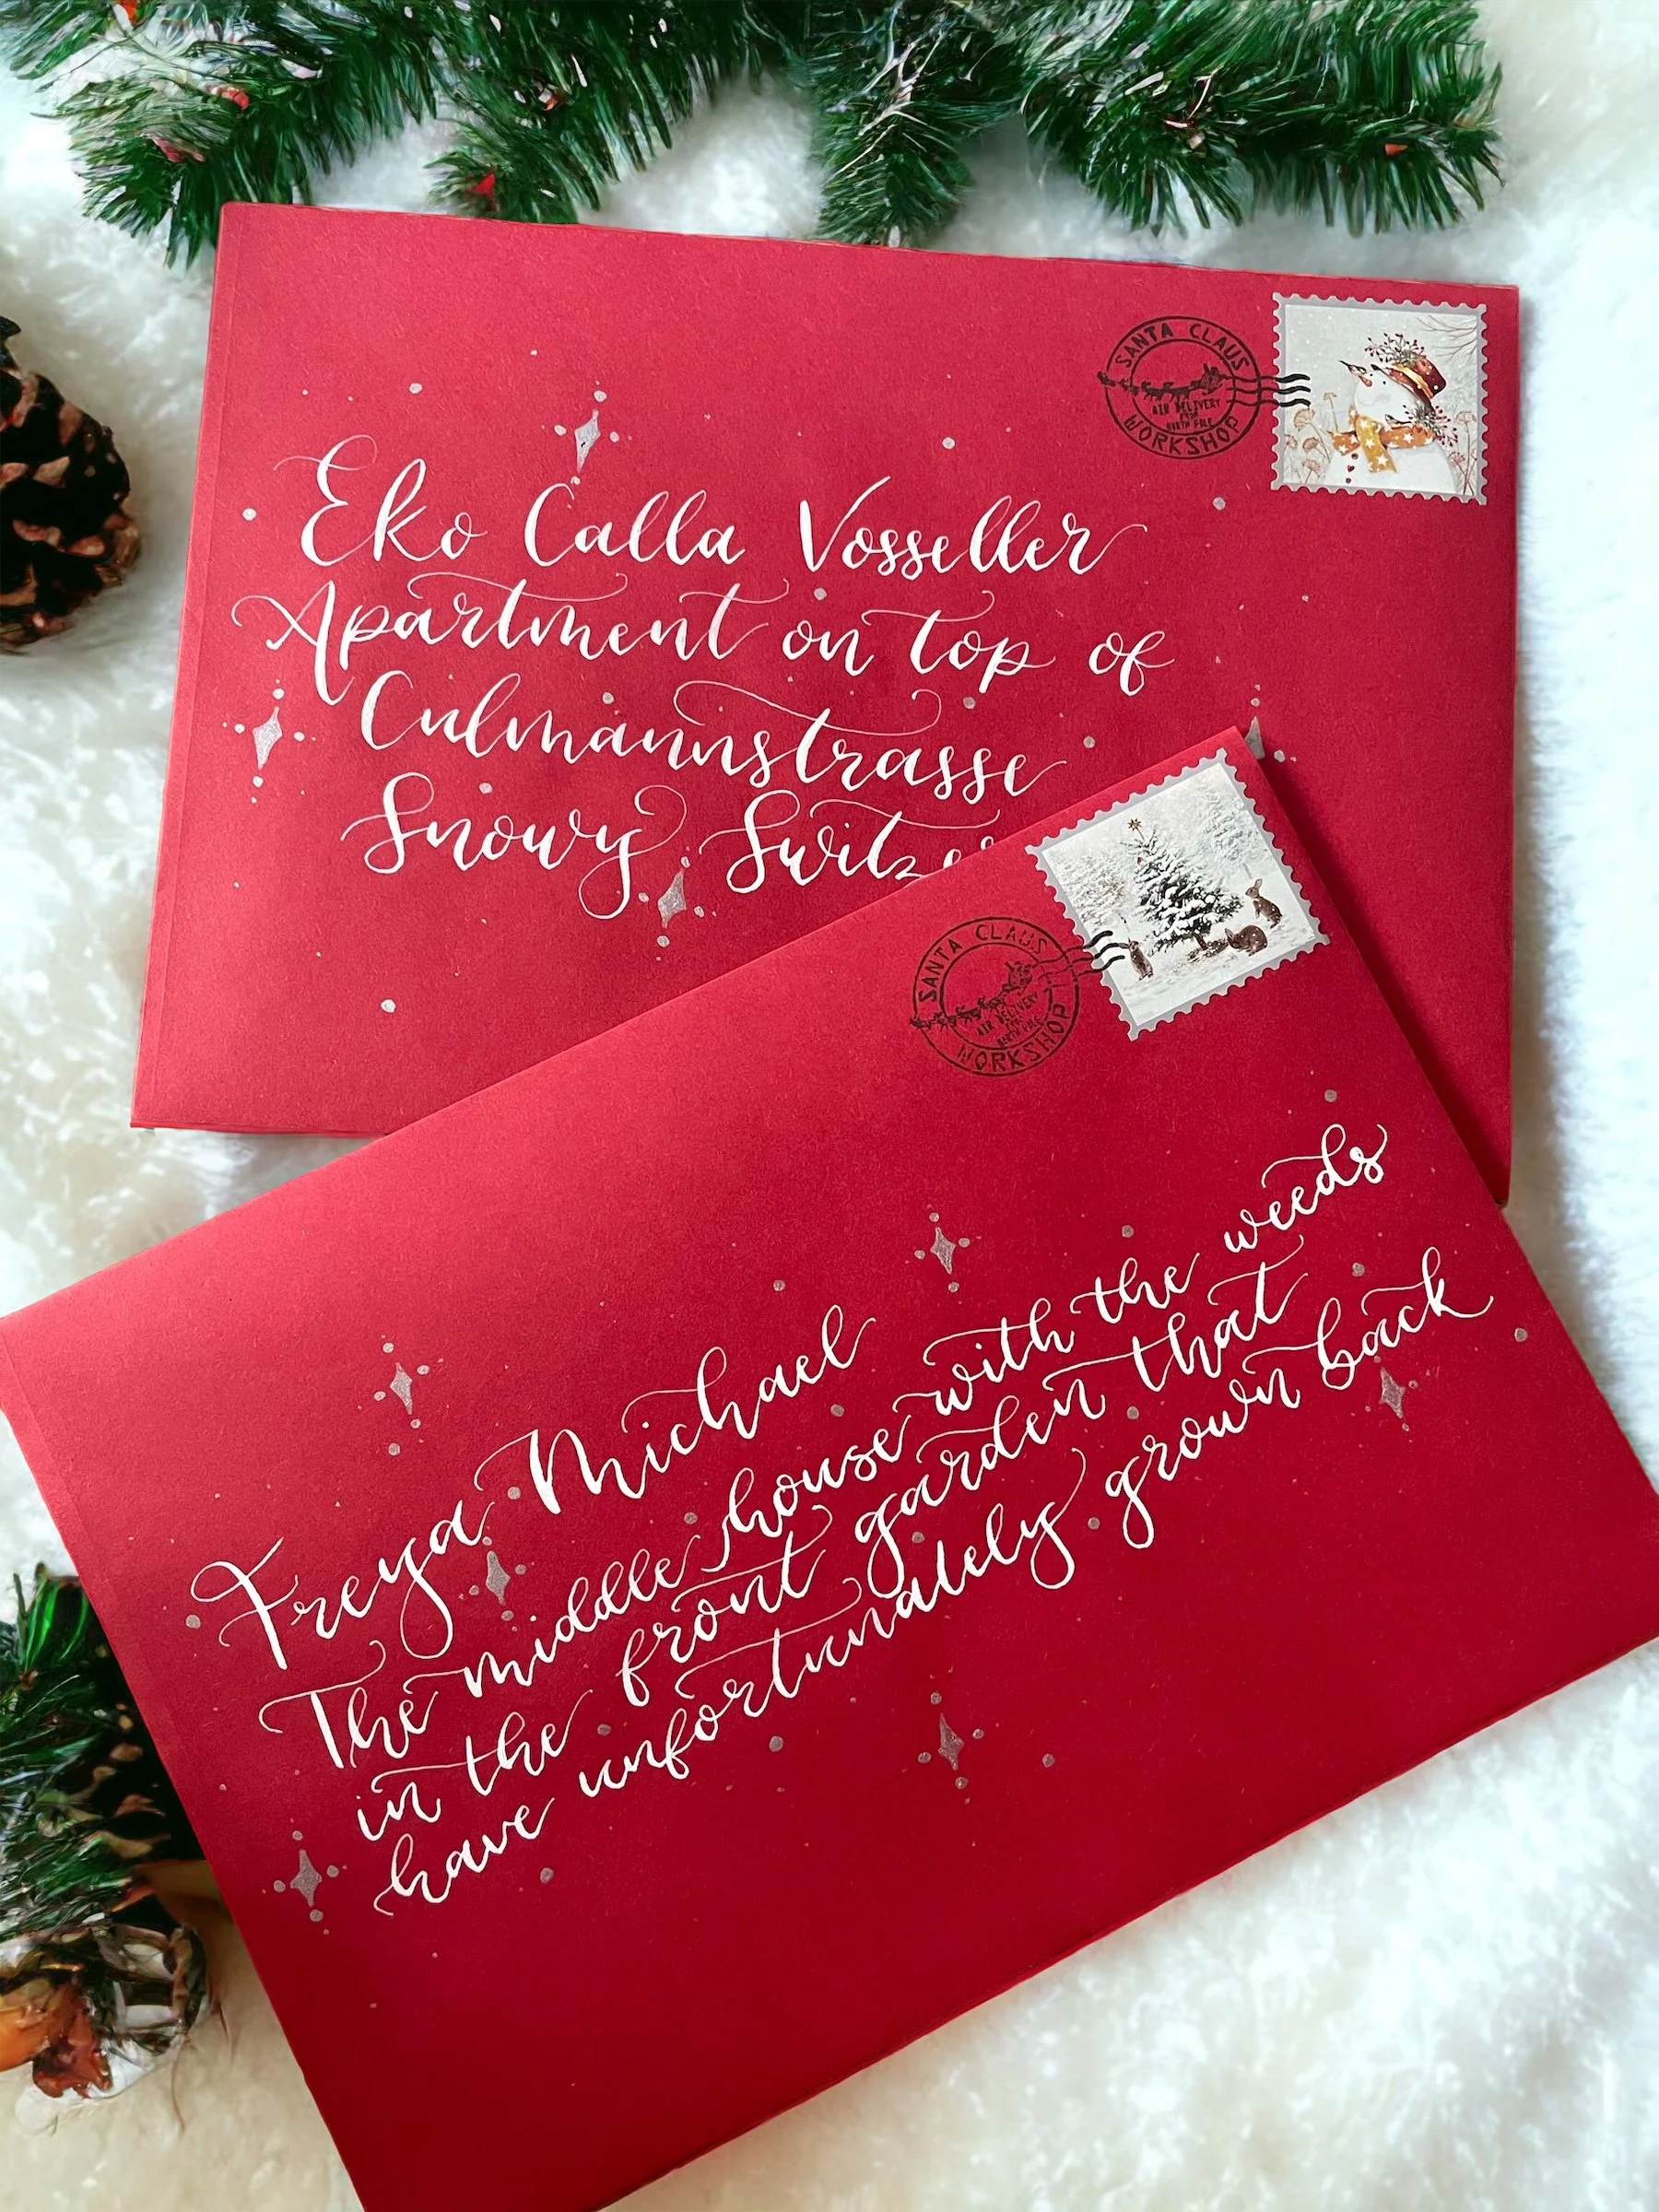 SANTA CLAUS
AIR DELIVERY
FROM
NORTH POLE
WORKSHOP
Eko Calla Vosseller
Apartment on top of
Culmannstrasse
Snowy Switze
SANTA CLAUS
AIR DELIVERY
FROM
NORTH POLE
WORKSHOP
Freya Michael
The middle house with the weeds
in the front garden that
have unfortunately grown back